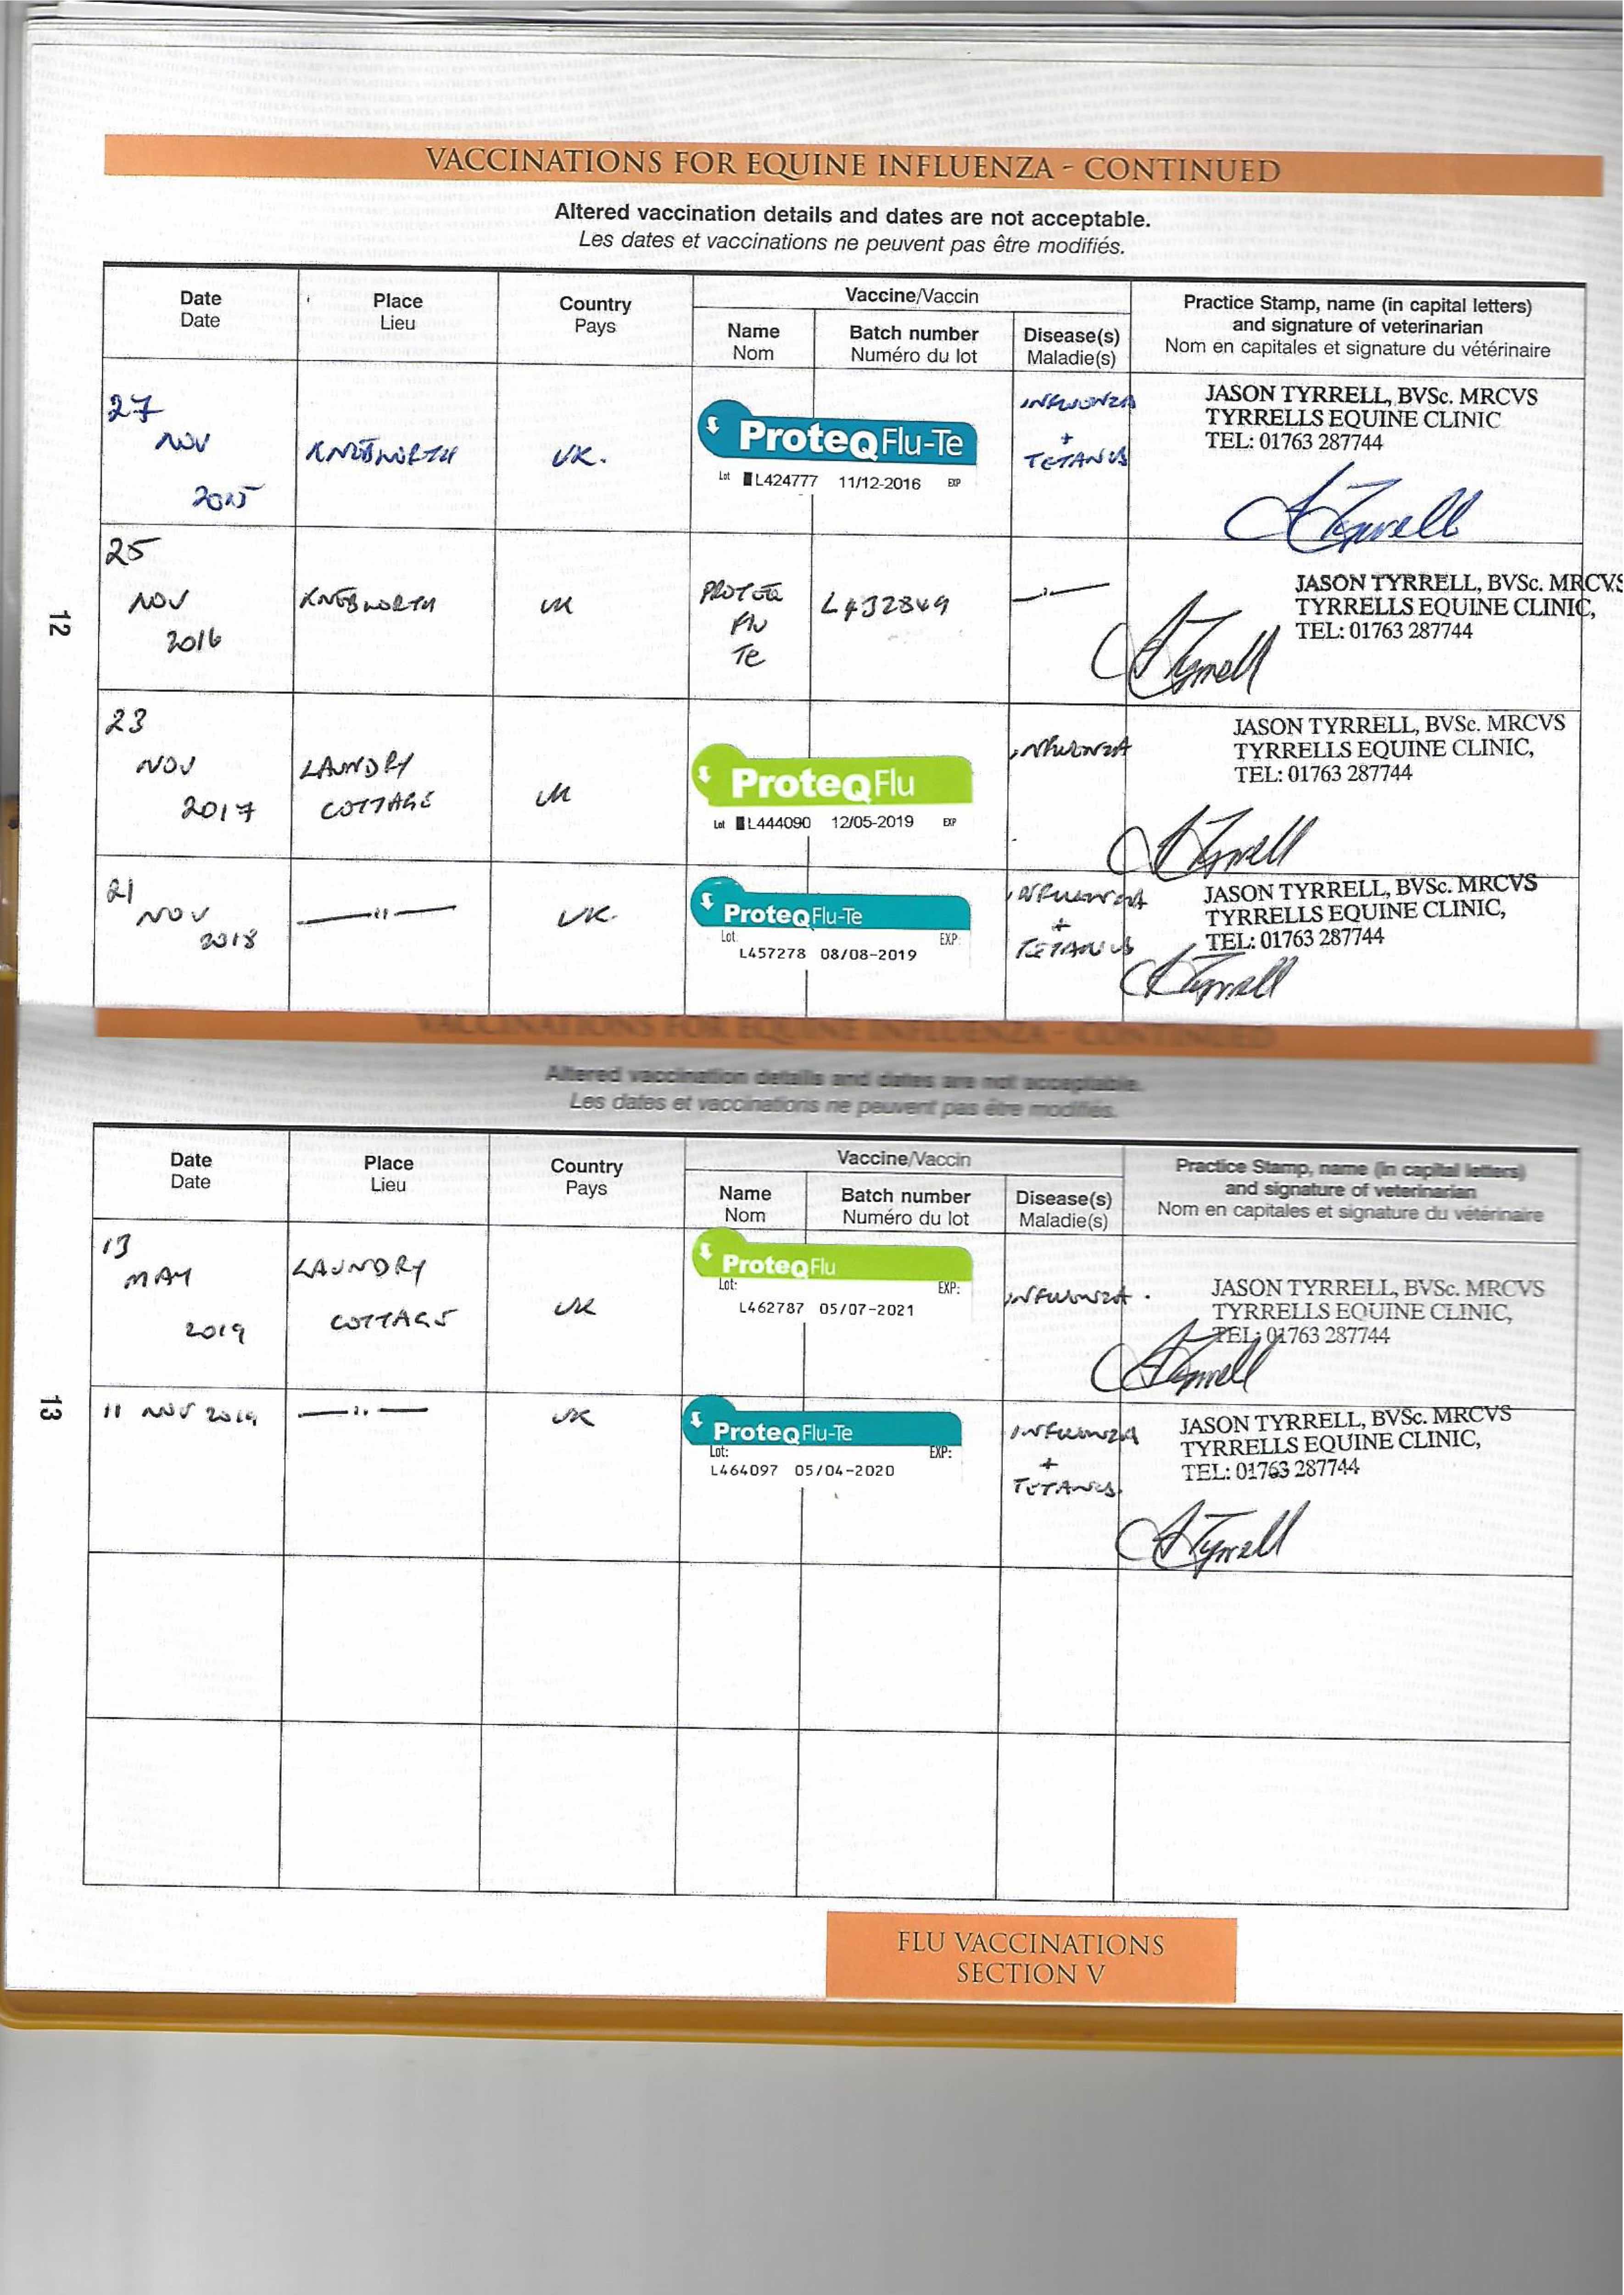 VACCINATIONS FOR EQUINE INFLUENZA - CONTINUED
Altered vaccination details and dates are not acceptable.
Les dates et vaccinations ne peuvent pas être modifiés.
Date
Date
Place
Lieu
Country
Pays
Vaccine/Vaccin
Name
Nom
Batch number
Numéro du lot
Disease(s)
Maladie(s)
Practice Stamp, name (in capital letters)
and signature of veterinarian
Nom en capitales et signature du vétérinaire
27
NOV
2015
KNEBWORTH
UK.
ProteqFlu-Te
Lot L424777 11/12-2016 EXP
INFLUENZA
+
TETANUS
JASON TYRRELL, BVSc. MRCVS
TYRRELLS EQUINE CLINIC
TEL: 01763 287744
25
NOV
2016
KNEBWORTH
UK
PROTEQ
Flu
Te
L432849
—"—
JASON TYRRELL, BVSc. MRCVS
TYRRELLS EQUINE CLINIC,
TEL: 01763 287744
12
23
NOV
2017
LAUNDRY
COTTAGE
UK
ProteqFlu
Lot L444090 12/05-2019 EXP
INFLUENZA
JASON TYRRELL, BVSc. MRCVS
TYRRELLS EQUINE CLINIC,
TEL: 01763 287744
21
NOV
2018
—"—
UK.
ProteqFlu-Te
Lot EXP:
L457278 08/08-2019
INFLUENZA
+
TETANUS
JASON TYRRELL, BVSc. MRCVS
TYRRELLS EQUINE CLINIC,
TEL: 01763 287744
VACCINATIONS FOR EQUINE INFLUENZA - CONTINUED
Altered vaccination details and dates are not acceptable.
Les dates et vaccinations ne peuvent pas être modifiés.
Date
Date
Place
Lieu
Country
Pays
Vaccine/Vaccin
Name
Nom
Batch number
Numéro du lot
Disease(s)
Maladie(s)
Practice Stamp, name (in capital letters)
and signature of veterinarian
Nom en capitales et signature du vétérinaire
13
MAY
2019
LAUNDRY
COTTAGE
UK
ProteqFlu
Lot: EXP:
L462787 05/07-2021
INFLUENZA.
JASON TYRRELL, BVSc. MRCVS
TYRRELLS EQUINE CLINIC,
TEL: 01763 287744
13
11 NOV 2019
—"—
UK
ProteqFlu-Te
Lot: EXP:
L464097 05/04-2020
INFLUENZA
+
TETANUS.
JASON TYRRELL, BVSc. MRCVS
TYRRELLS EQUINE CLINIC,
TEL: 01763 287744
FLU VACCINATIONS
SECTION V